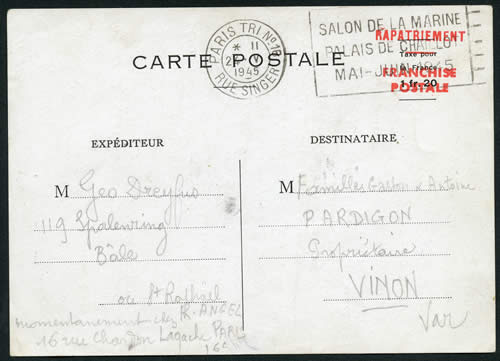 SALON DE LA MARINE
PALAIS DE CHAILLOT
MAI-JUIN 1945
PARIS TRI No 18
* II
1945
RUE SINGER
RAPATRIEMENT
Taxe pour
la France
FRANCHISE
1 fr. 20
POSTALE
CARTE POSTALE
EXPÉDITEUR
M Geo Dreyfus
119 Spalenring
Bâle
ou St Raphael
momentanement chez Ph. ANGEL
16 rue Chardon Lagache PARIS
16e
DESTINATAIRE
M Familles Gaston & Antoine
PARDIGON
Propriétaire
VINON
Var